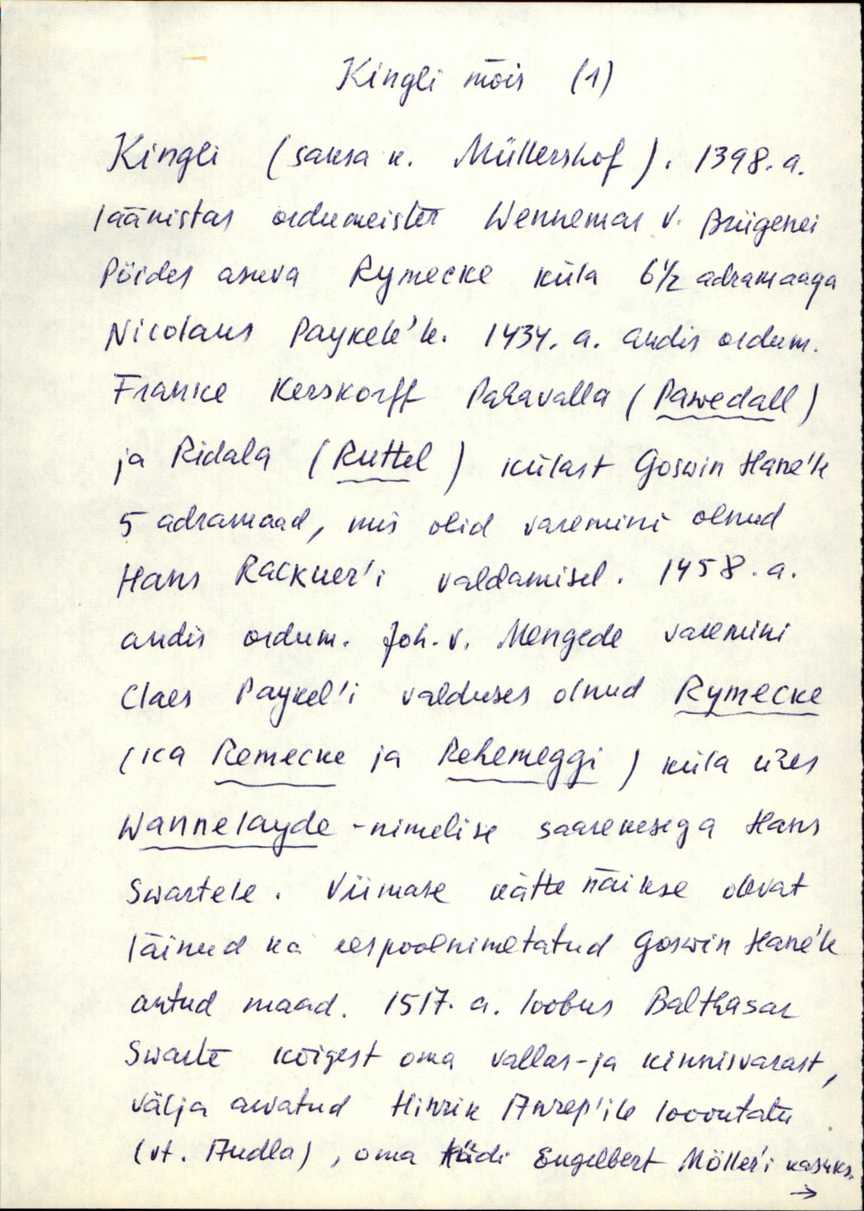 Kingli mõis (1)
Kingli (saksa k. Müllershof). 1398. a.
läänistas ordumeister Wennemar v. Brügenei
Pöides asuva Rymecke küla 6½ adramaaga
Nicolaus Paykele'le. 1434. a. andis ordum.
Franke Kerskorff Pahavalla (Pawedall)
ja Ridala (Ruttel) külast Goswin Hane'le
5 adramaad, mis olid varemini olnud
Hans Rackner'i valdamisel. 1458. a.
andis ordum. Joh. v. Mengede varemini
Claes Paykel'i valduses olnud Rymecke
(ka Remecke ja Rehemeggi) küla ühes
Wannelayde-nimelise saarekesega Hans
Swartele. Viimase kätte näikse olevat
läinud ka eespoolnimetatud Goswin Hane'le
antud maad. 1517. a. loobus Balthasar
Swarte kõigest oma vallas- ja kinnisvarast,
välja arvatud Hinrik Anrep'ile loovutatu
(vt. Audla), oma Engelbert Möller'i kasuks.
→